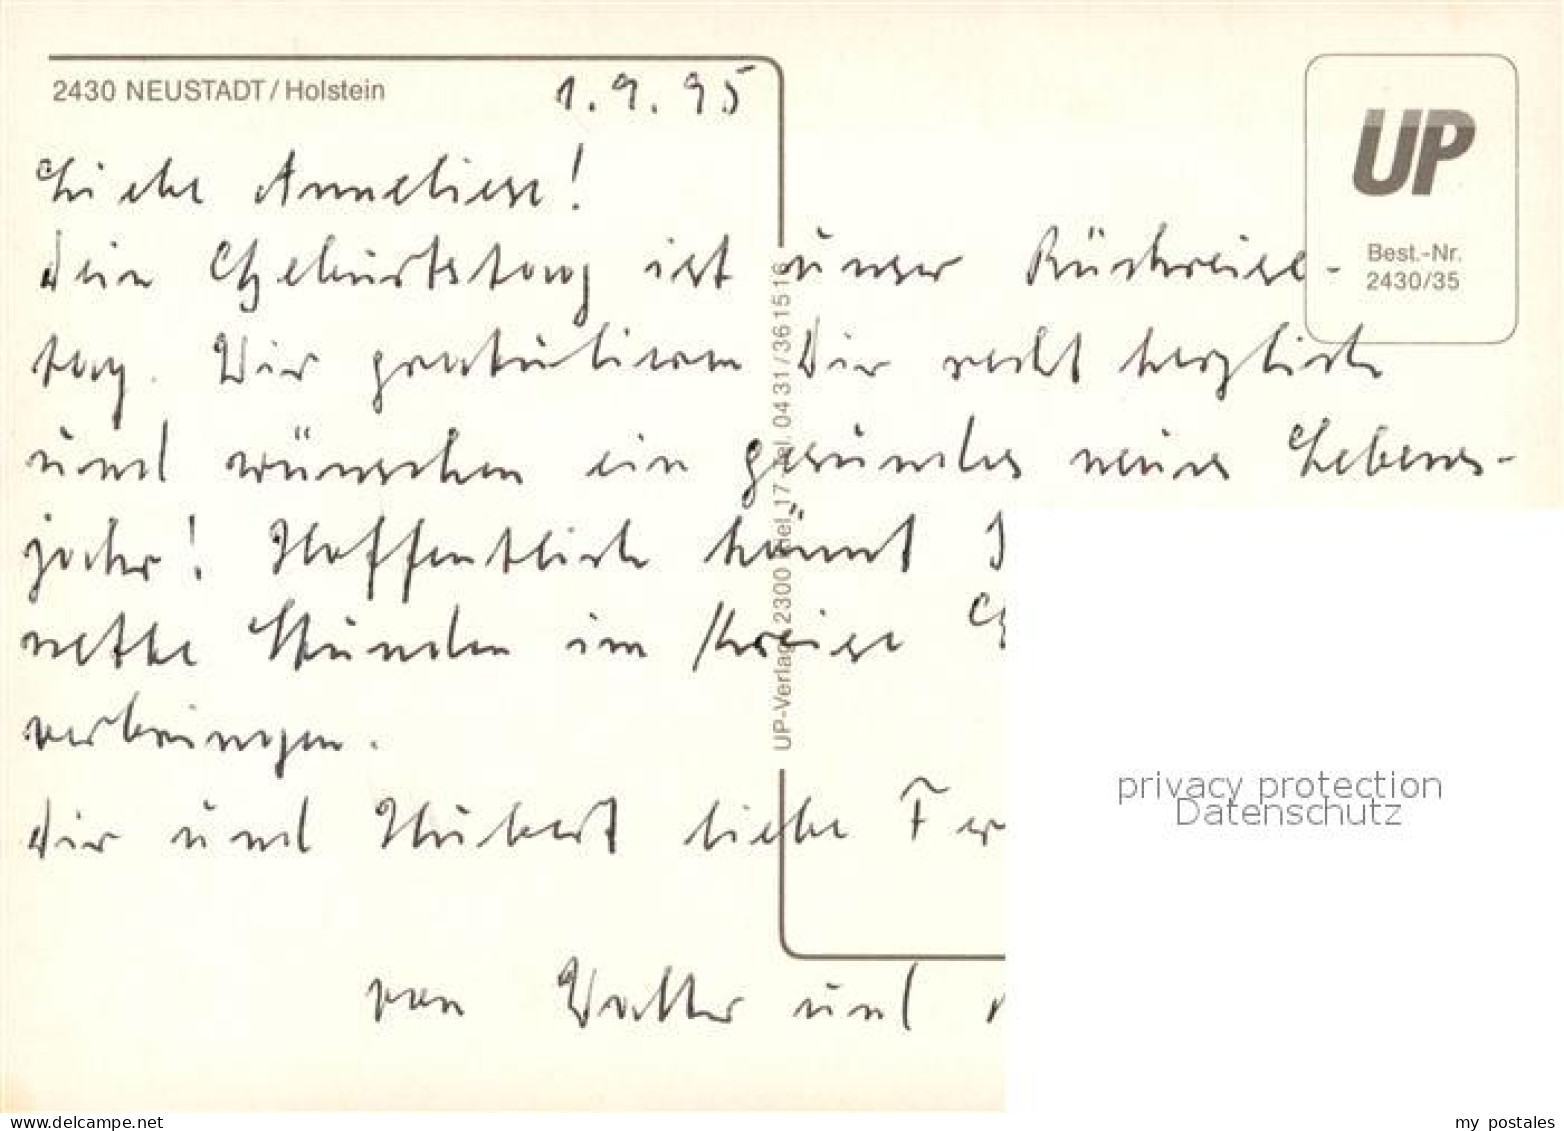 2430 NEUSTADT / Holstein
1.9.95
Liebe Anneliese!
Dein Geburtstag ist unser Rückreise-
tag. Wir gratulieren Dir recht herzlich
und wünschen ein gesundes neues Lebens-
jahr! Hoffentlich könnt
nette Stunden im Kreise
verbringen.
Dir und Hubert liebe Fer
von Walter und
UP-Verlag, 2300 Kiel 17 Tel. 04 31 / 36 15 16
UP
Best.-Nr.
2430/35
privacy protection
Datenschutz
www.delcampe.net
my postales